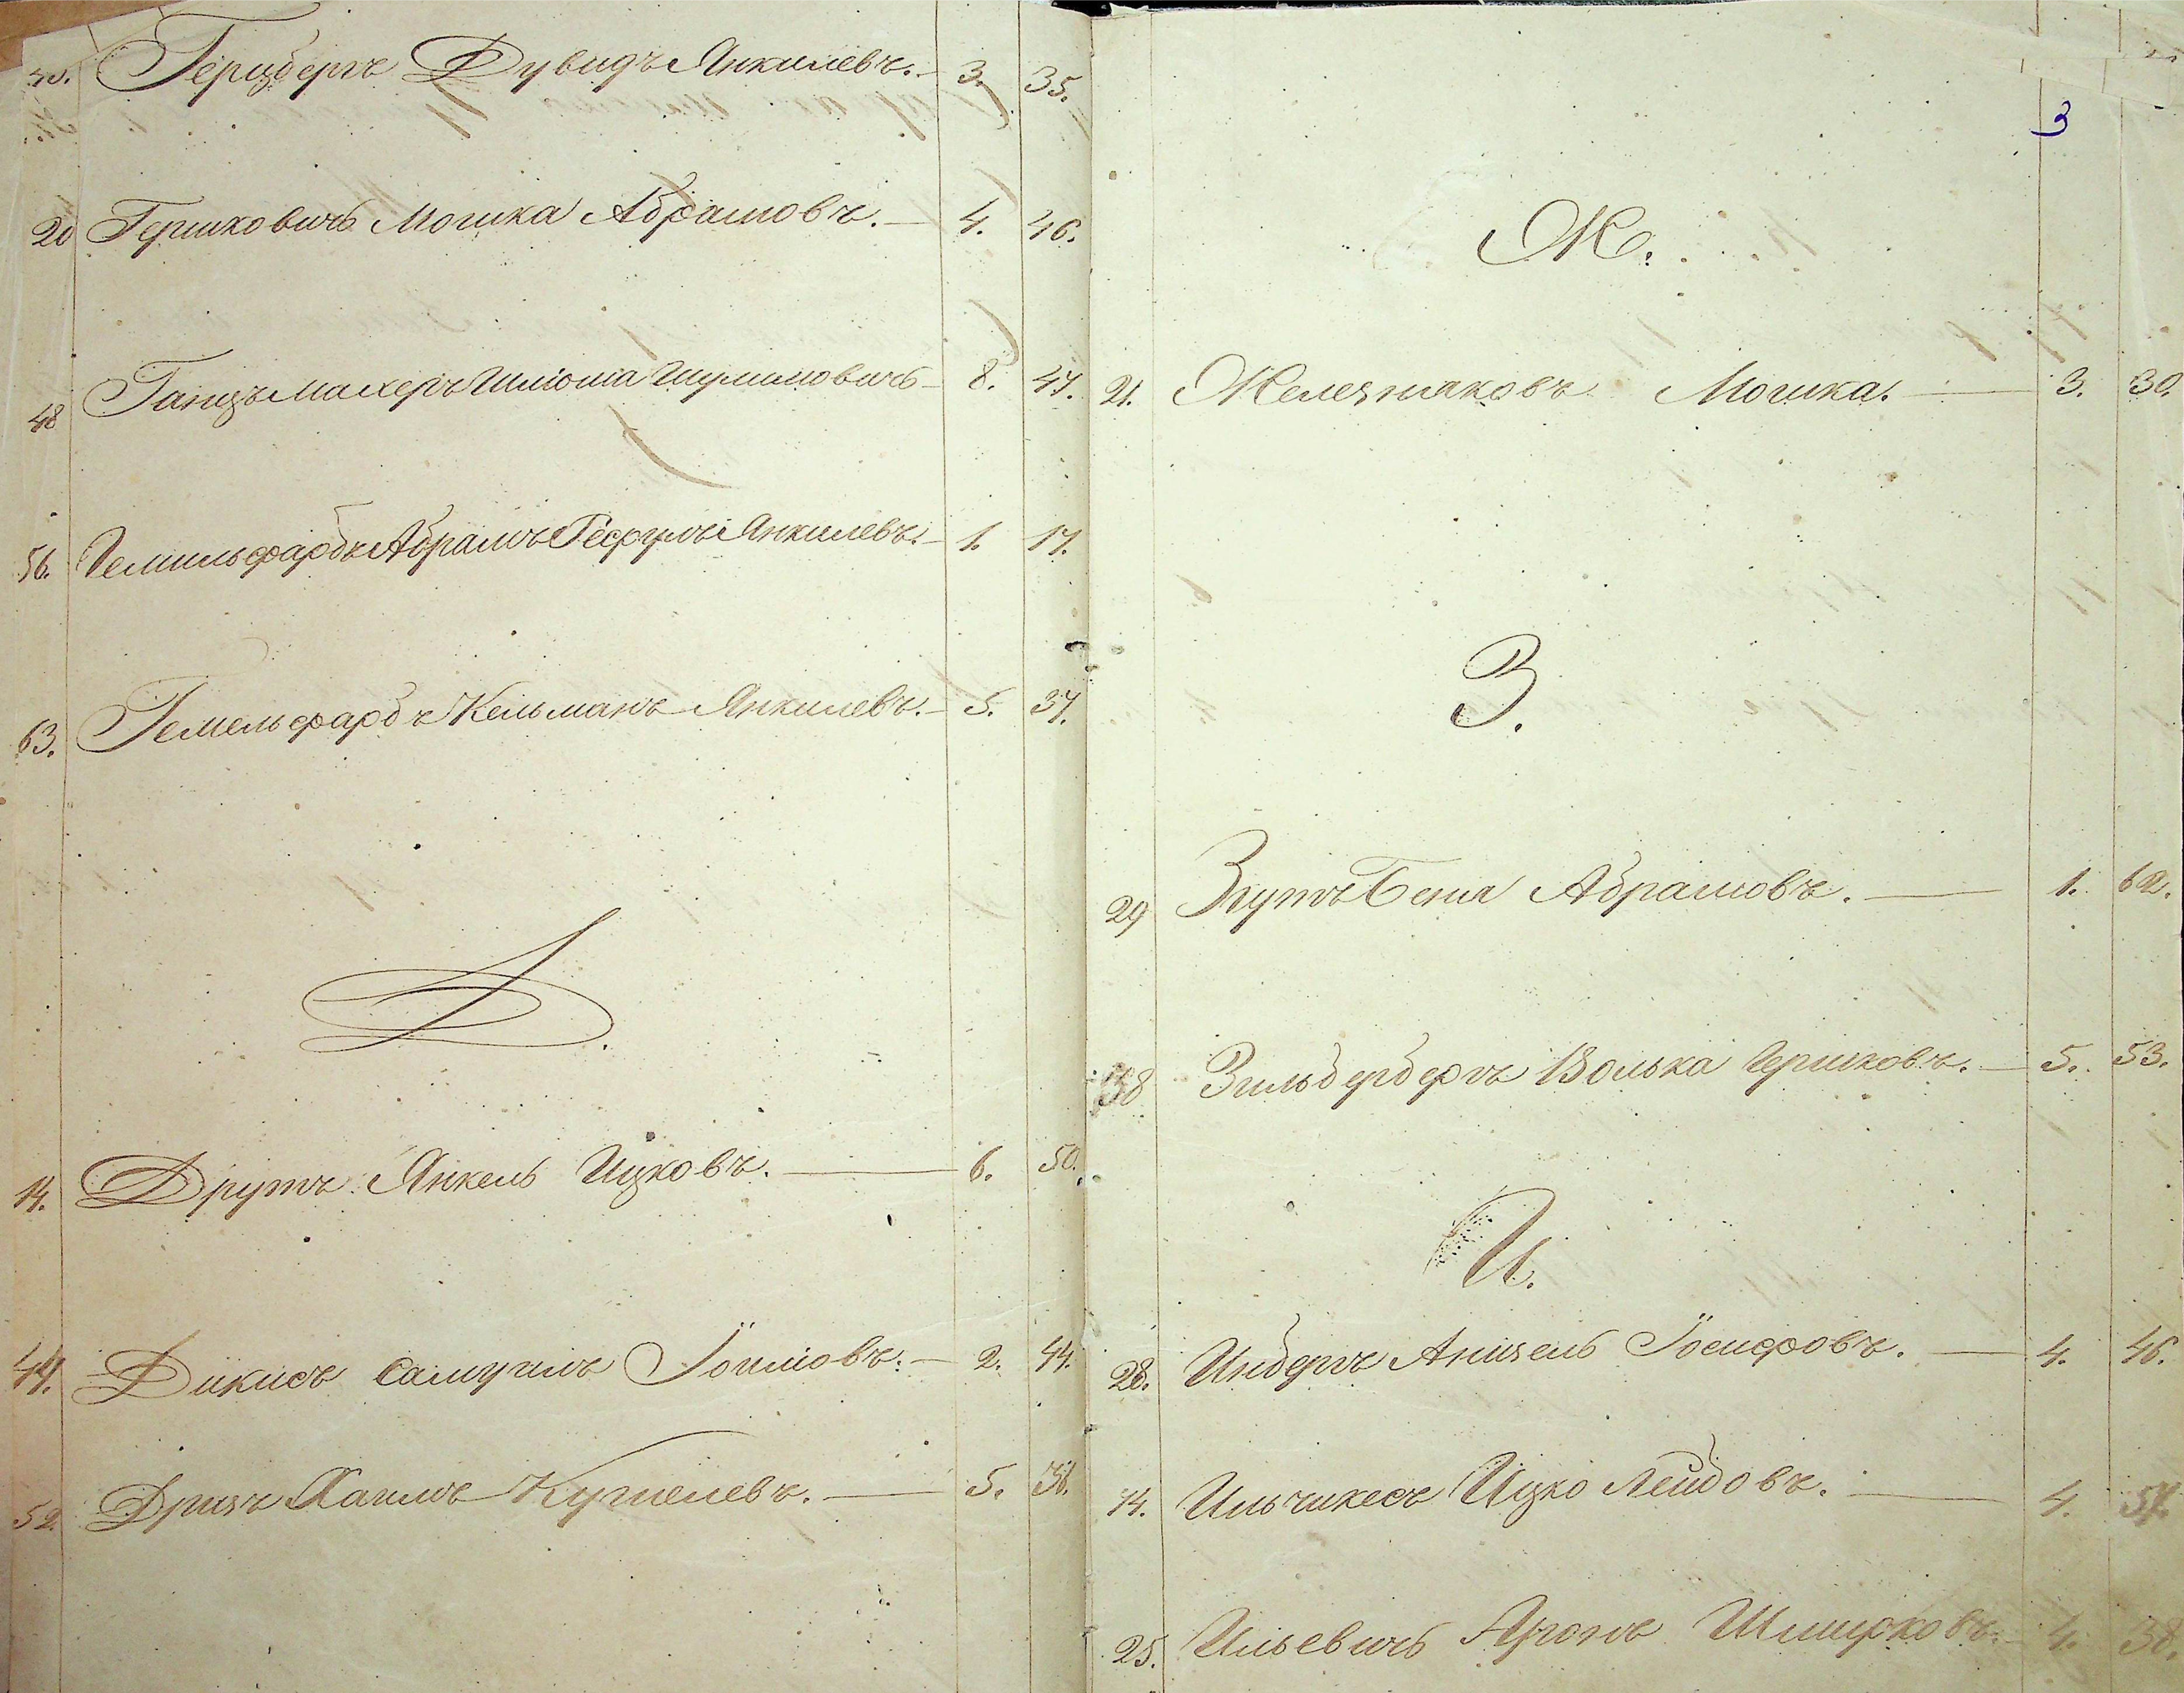 40. Герцбергъ Дувидъ Янкилевъ. 3. 35.
20 Гершковичъ Мошка Абрамовъ. — 4. 46.
48 Ганцъмахеръ Шліома Шулимовичъ — 8. 47.
56. Гемильфарбъ Абрамъ Янкилевъ. — 1. 17.
63. Гемельфарбъ Кельманъ Янкилевъ. — 5. 37.
Д.
14. Друтъ Янкель Ицковъ. — 6. 50.
44. Дикисъ Самуилъ — 2. 44.
52. Дризъ Хаимъ — 5. 36.
3
Ж.
21. Железняковъ Мошка. — 3. 30.
З.
29 Згутъ Беня Абрамовъ. — 1. 62.
38 Зильбербергъ Волька Гершковъ. — 5. 53.
И.
28. Инбергъ Анцель Іосифовъ. — 4. 46.
14. Ильчикесъ Ицко Лейбовъ. — 4. 57.
25. Ильевичъ Аронъ — 4. 38.